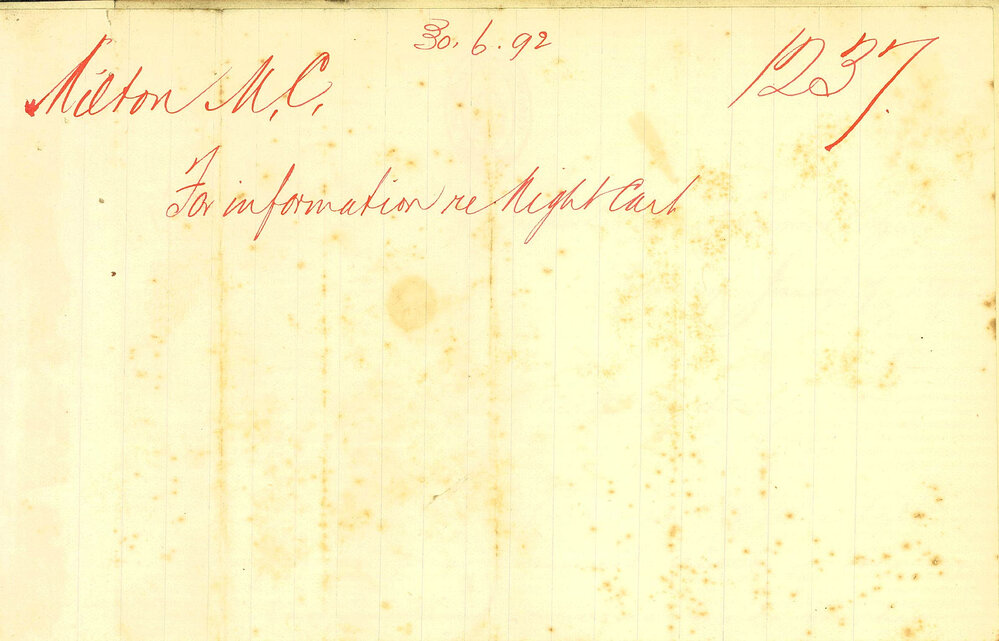 30.6.92
Milton M.C. 1237.
For information re Night Cart